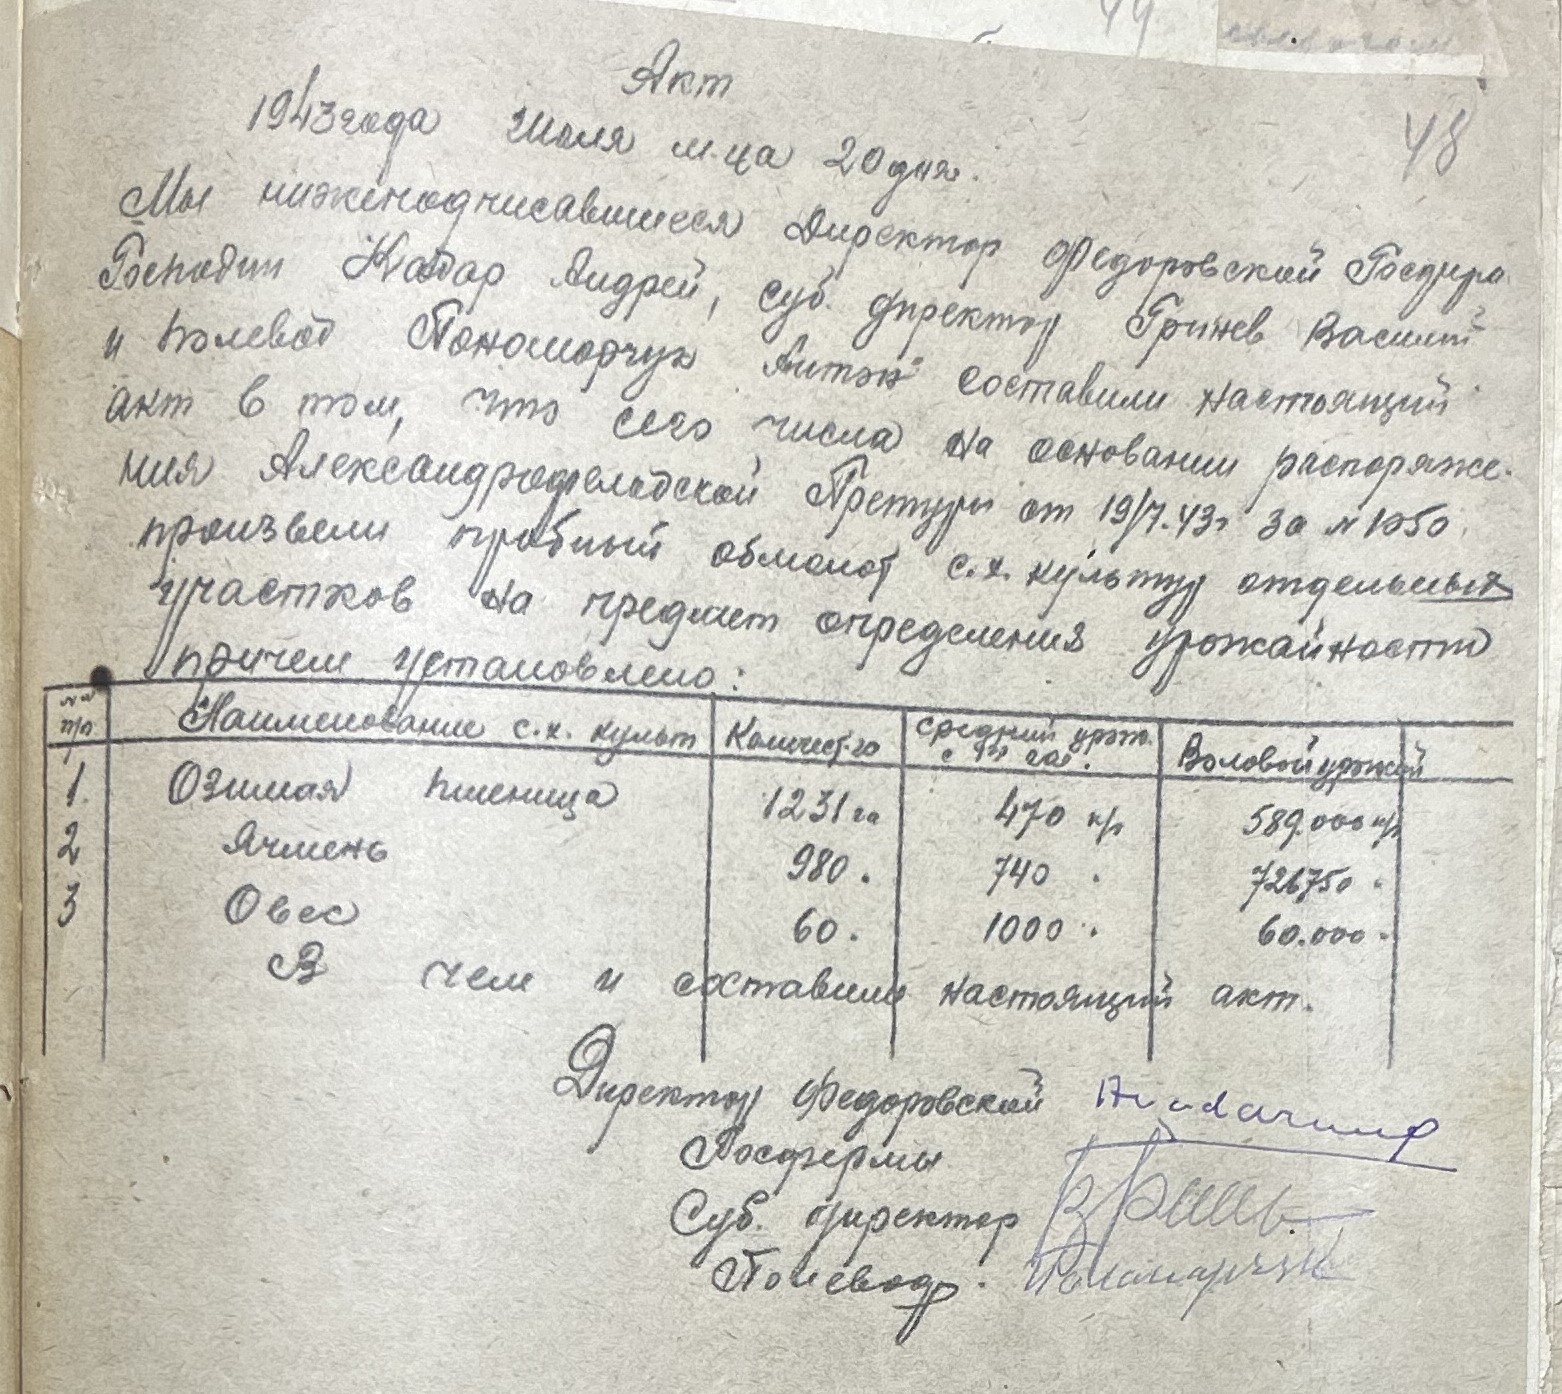 44
48
Акт
1943 года Июля м-ца 20 дня.
Мы нижеподписавшиеся Директор Федоровской
Господин Андрей, суб. директор Гринев Василий
и полевод Пономорчук Антон составили настоящий
акт в том, что сего числа на основании распоряже-
ния Александрфельдской Претуры от 19/7.43г за № 1050
произвели пробный обмолот с.х. культур отдельных
участков на предмет определения урожайности
причем установлено:
№№ п/п Наименование с.х. культ Количест. га Средний урож. с 1го га. Воловой урожай
1. Озимая пшеница 1231 га 470 к/г 589.000 к/г
2 Ячмень 980 . 740 . 726750 .
3 Овес 60 . 1000 . 60.000 .
В чем и составили настоящий акт.
Директор Федоровской
Госфермы
Суб. директор
Полевод. Пономарчук